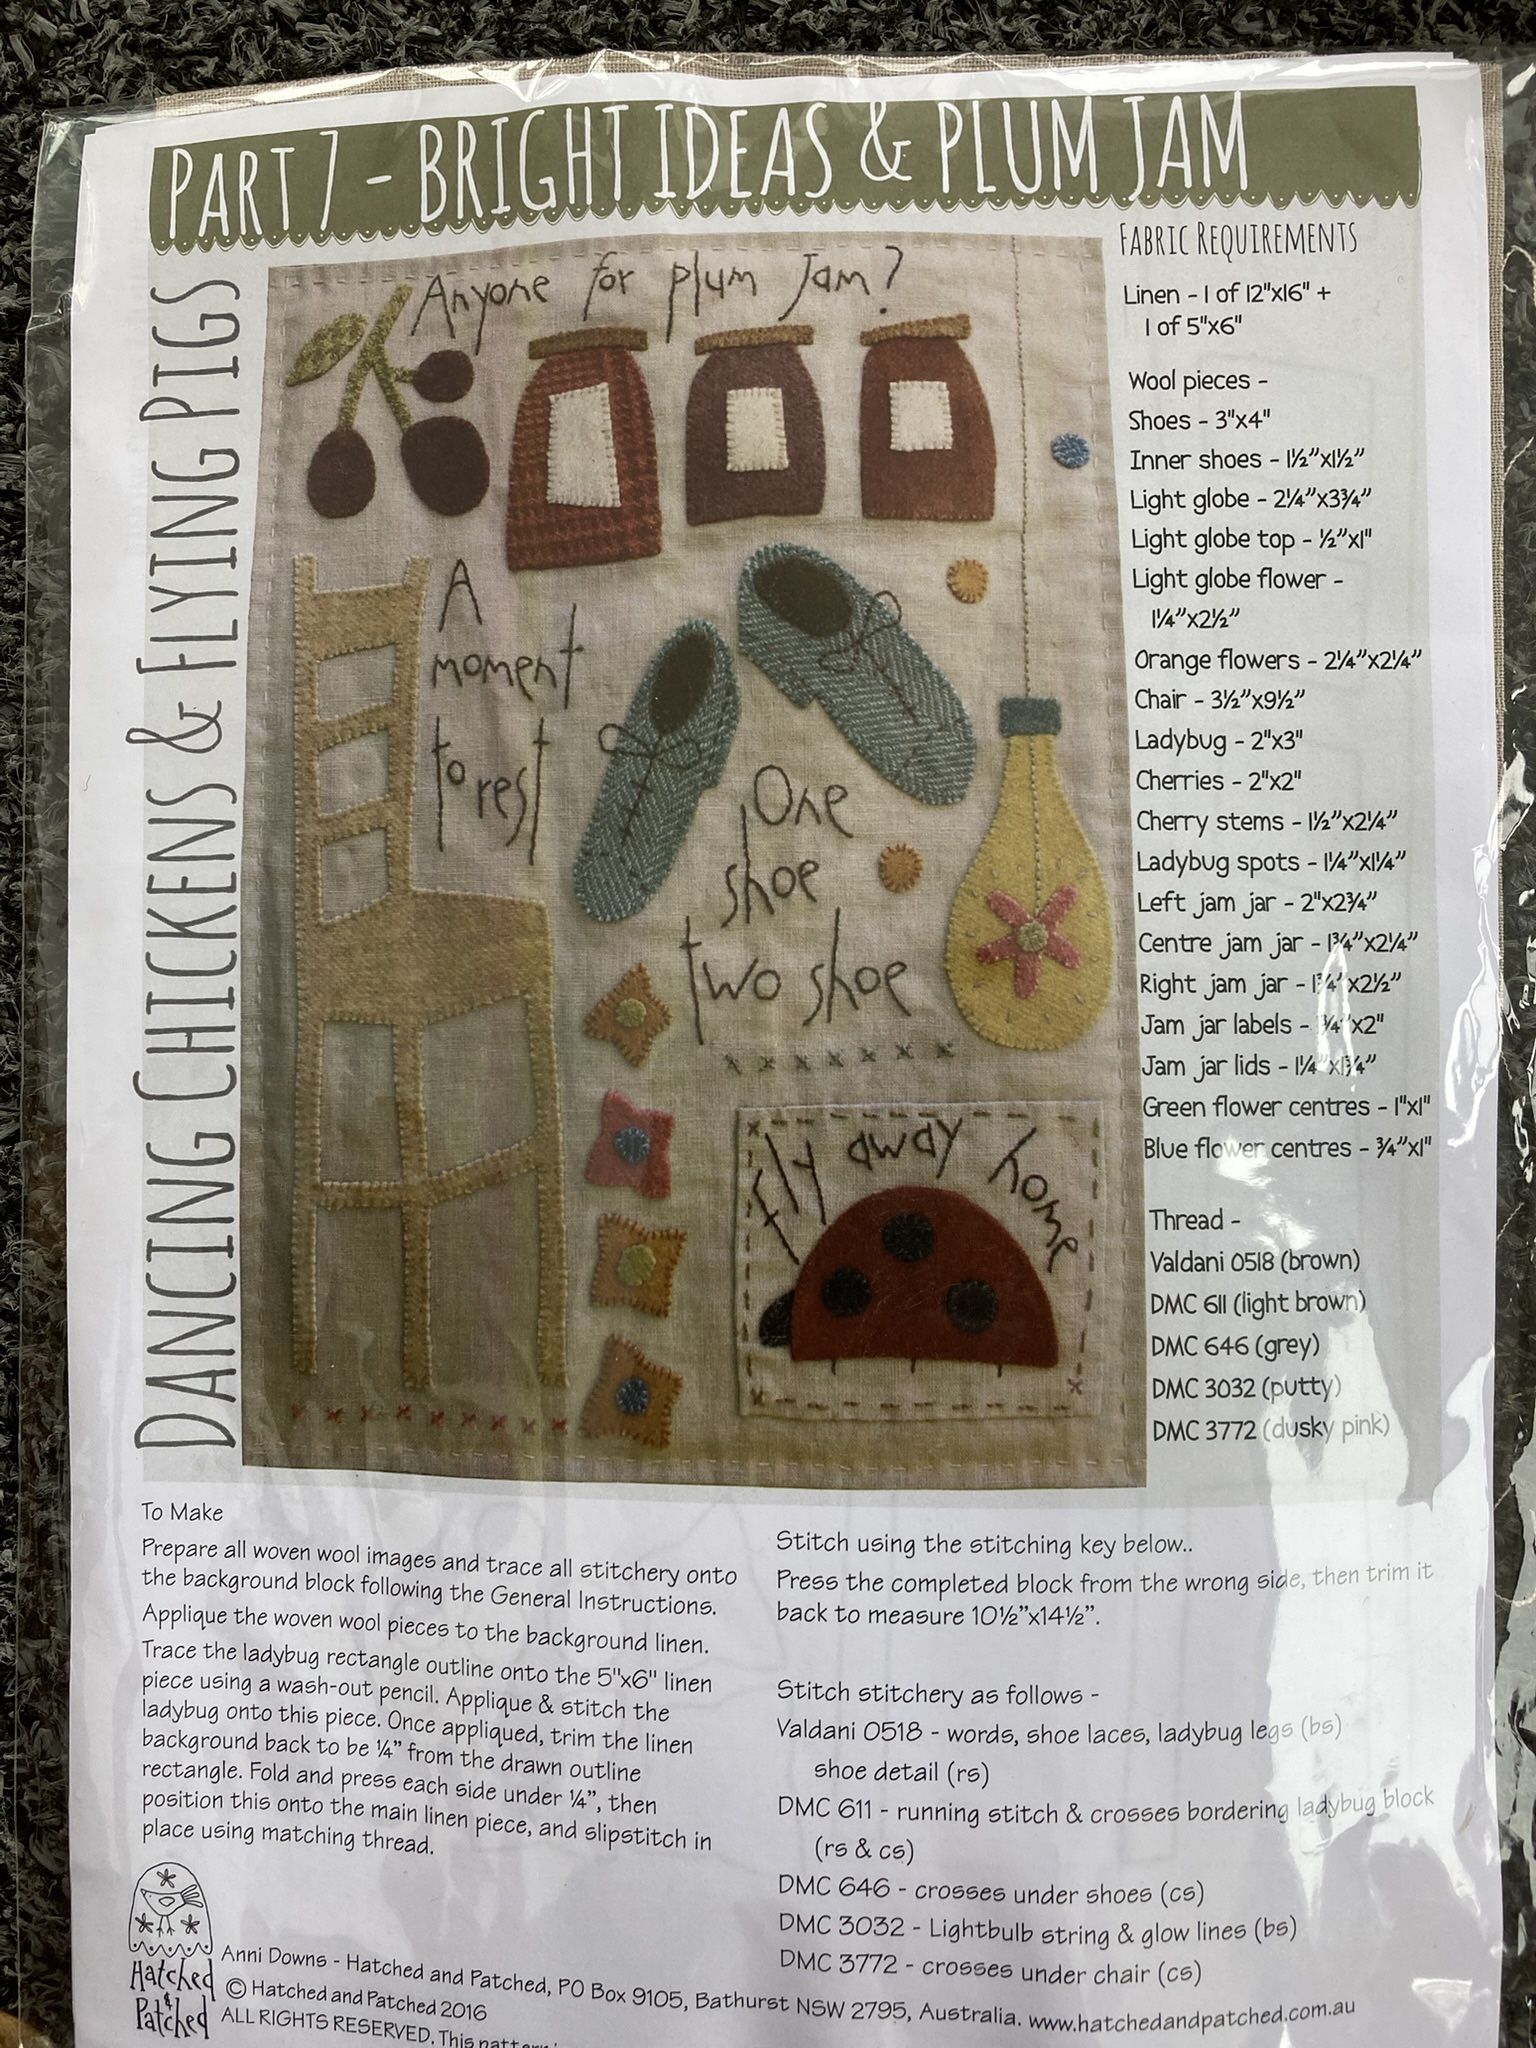 PART 7 - BRIGHT IDEAS & PLUM JAM
DANCING CHICKENS & FLYING PIGS
Anyone for plum jam?
A
moment
to rest
One
shoe
two shoe
fly away home
FABRIC REQUIREMENTS
Linen - 1 of 12"x16" +
1 of 5"x6"
Wool pieces -
Shoes - 3"x4"
Inner shoes - 1½"x1½"
Light globe - 2¼"x3¾"
Light globe top - ½"x1"
Light globe flower -
1¼"x2½"
Orange flowers - 2¼"x2¼"
Chair - 3½"x9½"
Ladybug - 2"x3"
Cherries - 2"x2"
Cherry stems - 1½"x2¼"
Ladybug spots - 1¼"x1¼"
Left jam jar - 2"x2¾"
Centre jam jar - 1¾"x2¼"
Right jam jar - 1¾"x2½"
Jam jar labels - ¾"x2"
Jam jar lids - 1¼"x1¾"
Green flower centres - 1"x1"
Blue flower centres - ¾"x1"
Thread -
Valdani 0518 (brown)
DMC 611 (light brown)
DMC 646 (grey)
DMC 3032 (putty)
DMC 3772 (dusky pink)
To Make
Prepare all woven wool images and trace all stitchery onto
the background block following the General Instructions.
Applique the woven wool pieces to the background linen.
Trace the ladybug rectangle outline onto the 5"x6" linen
piece using a wash-out pencil. Applique & stitch the
ladybug onto this piece. Once appliqued, trim the linen
background back to be ¼" from the drawn outline
rectangle. Fold and press each side under ¼", then
position this onto the main linen piece, and slipstitch in
place using matching thread.
Stitch using the stitching key below..
Press the completed block from the wrong side, then trim it
back to measure 10½"x14½".
Stitch stitchery as follows -
Valdani 0518 - words, shoe laces, ladybug legs (bs)
shoe detail (rs)
DMC 611 - running stitch & crosses bordering ladybug block
(rs & cs)
DMC 646 - crosses under shoes (cs)
DMC 3032 - Lightbulb string & glow lines (bs)
DMC 3772 - crosses under chair (cs)
Hatched
&
Patched
Anni Downs - Hatched and Patched, PO Box 9105, Bathurst NSW 2795, Australia. www.hatchedandpatched.com.au
© Hatched and Patched 2016
ALL RIGHTS RESERVED. This